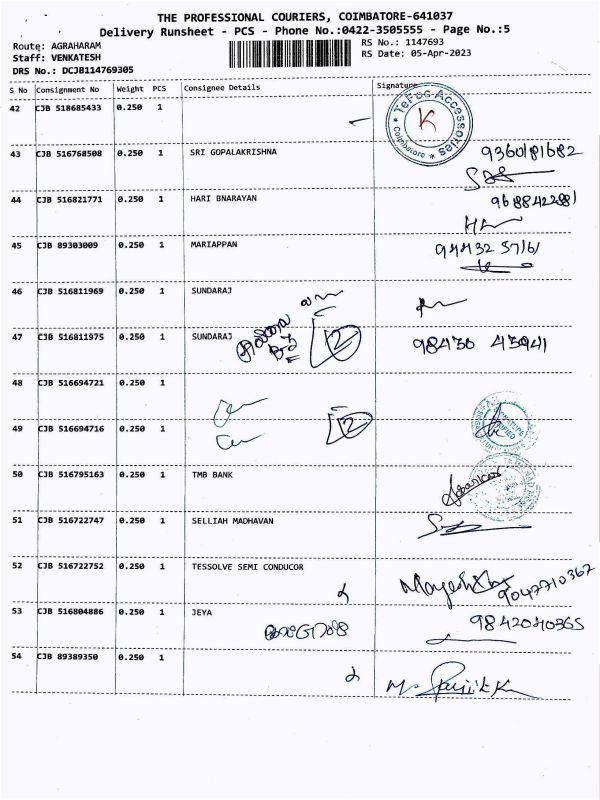 THE PROFESSIONAL COURIERS, COIMBATORE-641037
Delivery Runsheet - PCS - Phone No.:0422-3505555 - Page No.:5
Route: AGRAHARAM
RS No.: 1147693
Staff: VENKATESH
RS Date: 05-Apr-2023
DRS No.: DCJB114769305
S No Consignment No Weight PCS Consignee Details Signature
42 CJB 518685433 0.250 1
Accessories
Coimbatore
K
43 CJB 516768508 0.250 1 SRI GOPALAKRISHNA 9360181682
44 CJB 516821771 0.250 1 HARI BNARAYAN
45 CJB 89303009 0.250 1 MARIAPPAN 94432 57161
46 CJB 516811969 0.250 1 SUNDARAJ
47 CJB 516811975 0.250 1 SUNDARAJ 12 98430 43941
48 CJB 516694721 0.250 1
49 CJB 516694716 0.250 1 12
50 CJB 516795163 0.250 1 TMB BANK
51 CJB 516722747 0.250 1 SELLIAH MADHAVAN
52 CJB 516722752 0.250 1 TESSOLVE SEMI CONDUCOR 9047710367
53 CJB 516804886 0.250 1 JEYA
54 CJB 89389350 0.250 1